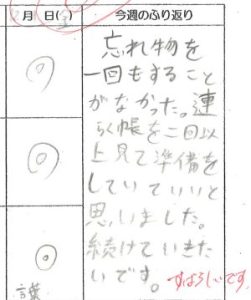 月 日(金) 今週のふり返り
忘れ物を
一回もすること
がなかった。連
らく帳を二回以
上見て準備を
していていいと
思いました。
続けていきた
いです。
すばらしいです
言葉